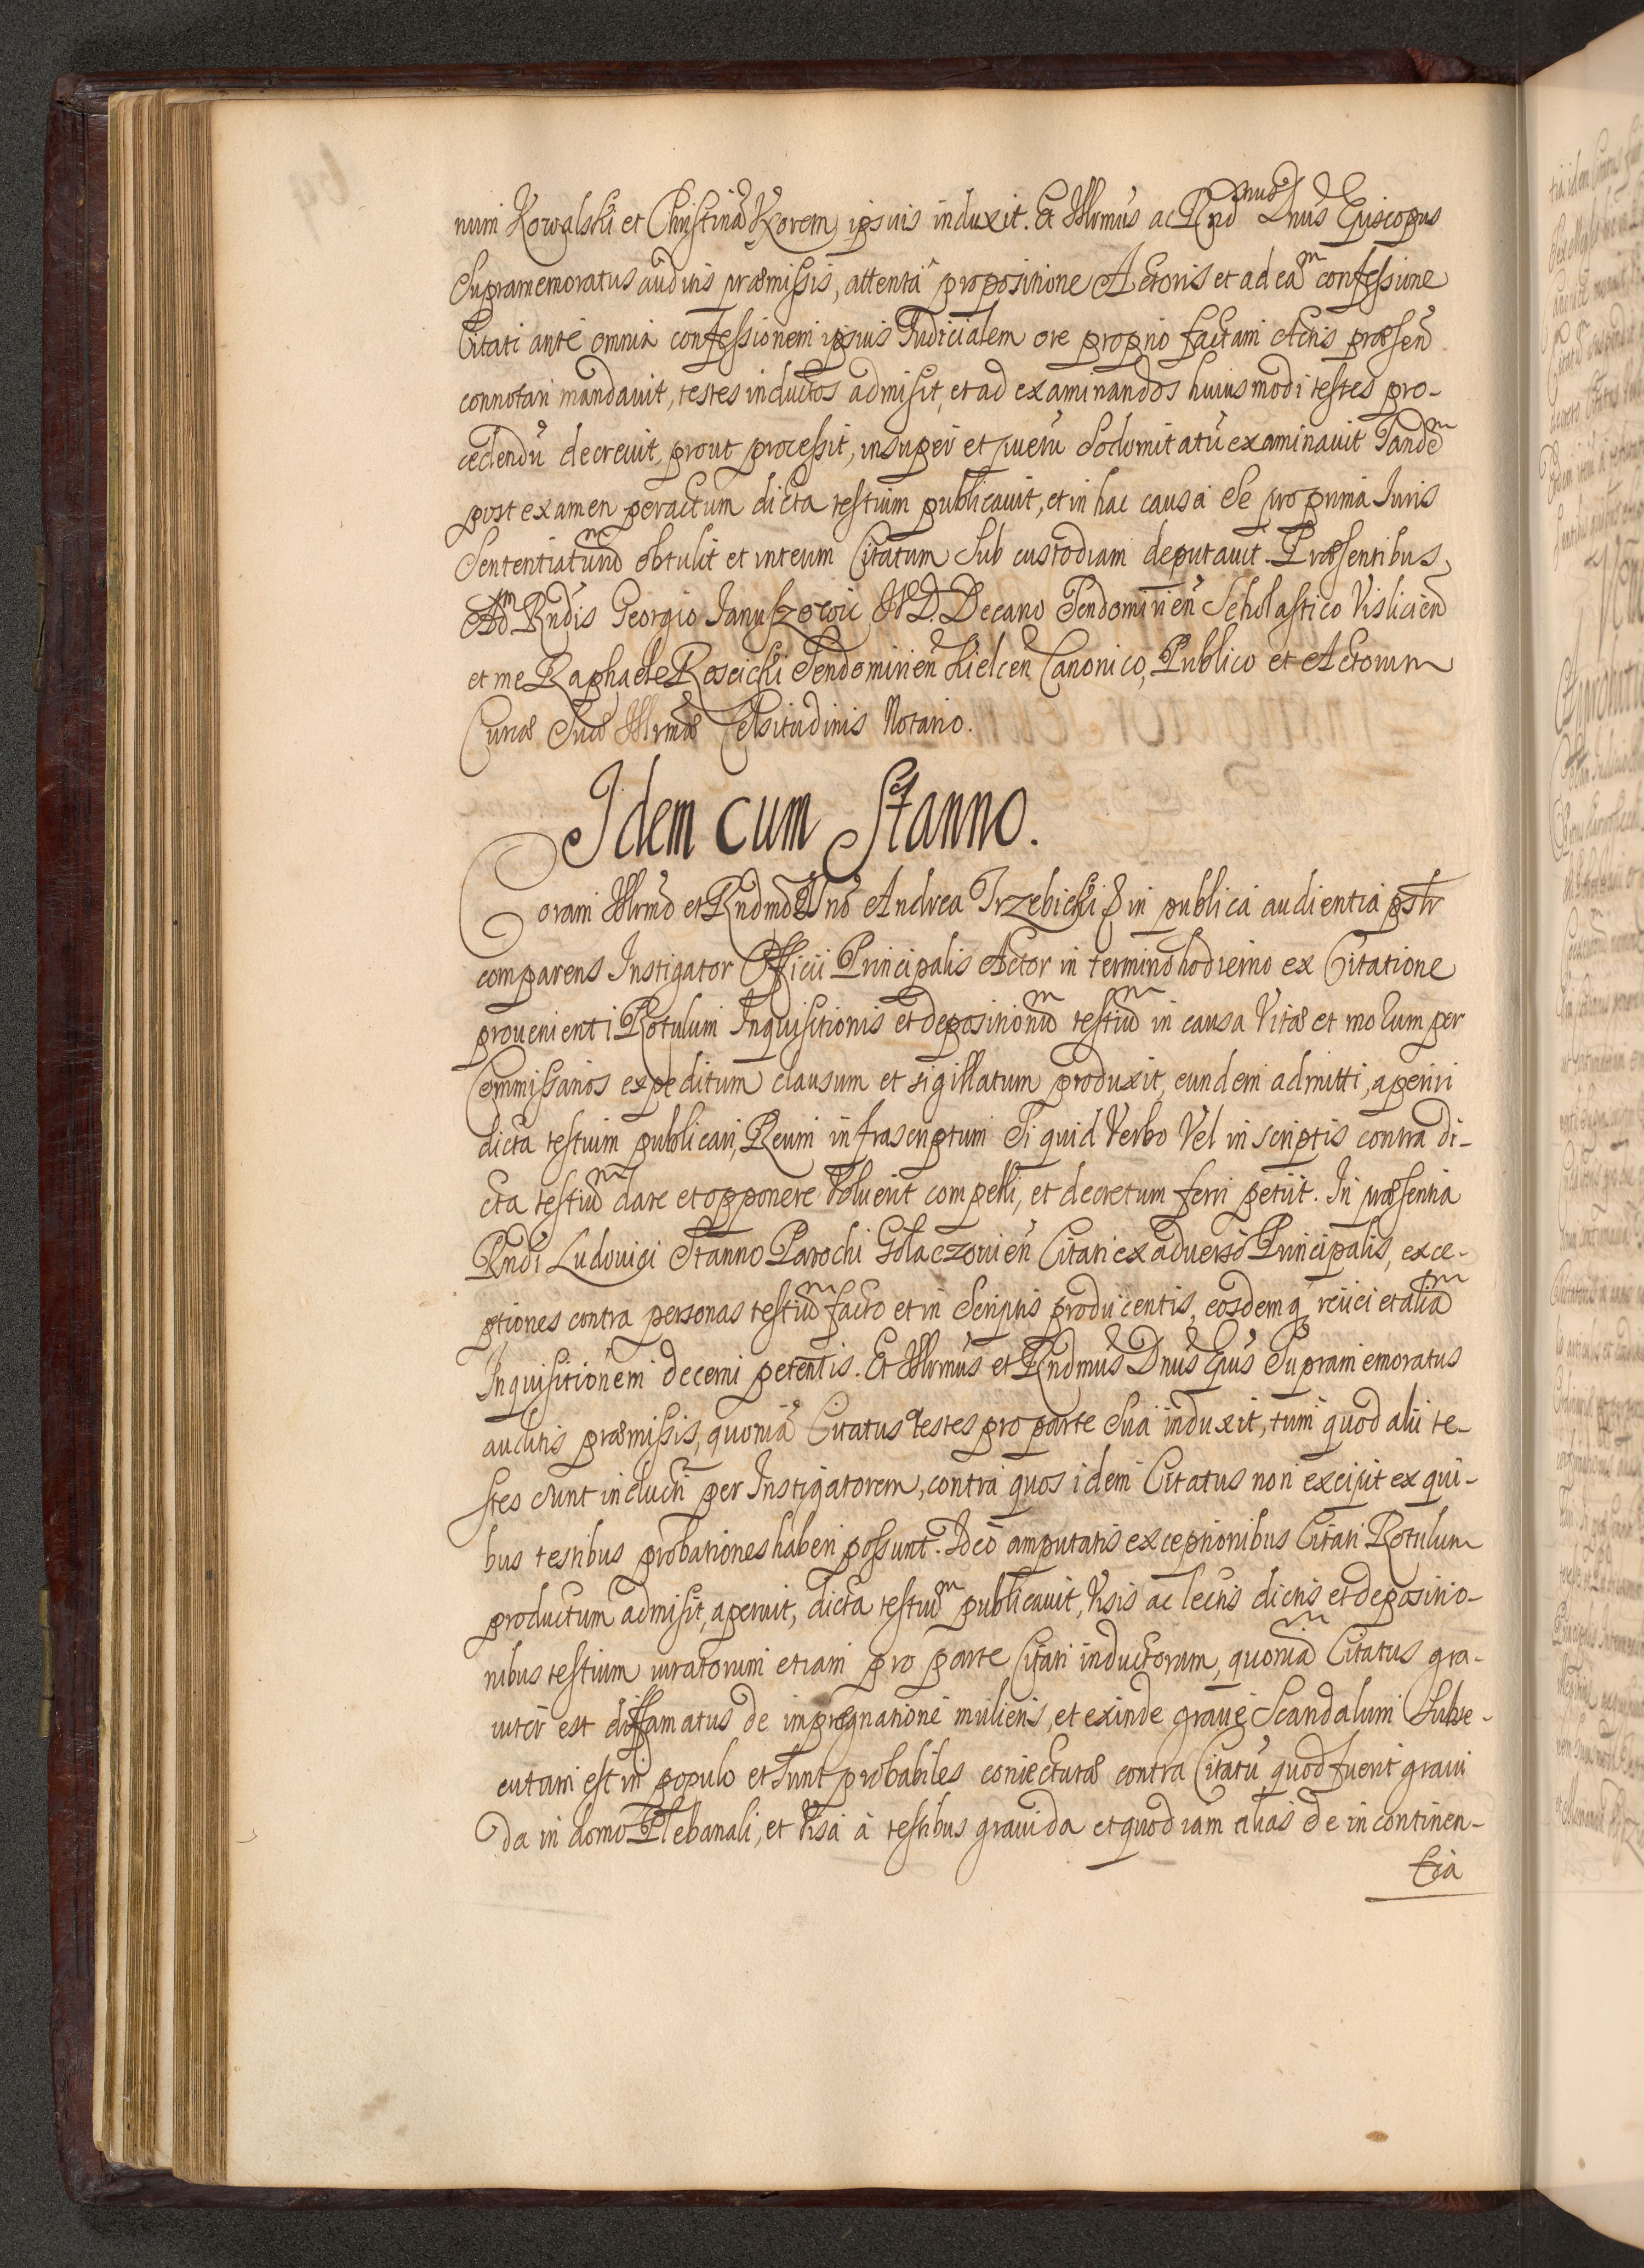 num Kowalski et Christinã Vxorem ipsius induxit. Et Illrmus ac Rndmus Dnus Episcopus
Supramemoratus auditis præmissis, attenta propositione Actoris et ad eam confessione
Citati ante omnia confessionem ipsius Iudicialem ore proprio factam Actis præsen̄
connotari mandauit, testes inductos admisit, et ad examinandos huiusmodi testes pro-
cedendũ decreuit, prout processit, insuper et puerũ Sodomitatũ examinauit Tandem
post examen peractum dicta testium publicauit, et in hac causa Se pro prima Iuris
Sententiaturum obtulit et interim Citatum Sub custodiam deputauit. Præsentibus
Adm Rndis Georgio Januszowic IVD. Decano Sendomirien̄ Scholastico Vislicien̄
et me Raphaele Roscicki Sendomirien̄ Kielcen̄ Canonico, Publico et Actorum
Curiæ Suæ Illrmæ Celsitudinis Notario.
Idem cum Stanno.
Coram Illrmo et Rndmo Dno Andrea Trzebicki & in publica audientia pstr
comparens Instigator Officii Principalis Actor in termino hodierno ex Citatione
prouenienti Rotulum Inquisitionis et depositionum testium in causa Vitæ et morum per
Commissarios expeditum clausum et sigillatum produxit, eundem admitti, aperiri
dicta testium publicari, Reum infrascriptum Si quid Verbo Vel in scriptis contra di-
cta testium dare et opponere Voluerit compelli, et decretum ferri petiit. In præsentia
Rndi Ludouici Stanno Parochi Golaczouien̄ Citati ex aduerso Principalis, exce-
ptiones contra personas testium facto et in Scriptis producentis, eosdemq reiici et aliam
Inquisitionem decerni petentis. Et Illrmus et Rndmus Dnus Epus Supramemoratus
auditis præmissis, quoniã Citatus testes pro parte Sua induxit, tum quod alii te-
stes Sunt inducti per Instigatorem, contra quos idem Citatus non excipit ex qui-
bus testibus probationes haberi possunt. Ideo amputatis exceptionibus Citati Rotulum
productum admisit, aperuit, dicta testium publicauit, Visis ac lectis dictis et depositio-
nibus testium iuratorum etiam pro parte Citati inductorum, quoniam Citatus gra-
uiter est diffamatus de impregnatione mulieris, et exinde graue Scandalum Subse-
cutum est in populo et Sunt probabiles coniecturæ contra Citatũ quod fuerit graui
da in domo Plebanali, et Visa à testibus grauida et quod iam alias de incontinen-
tia